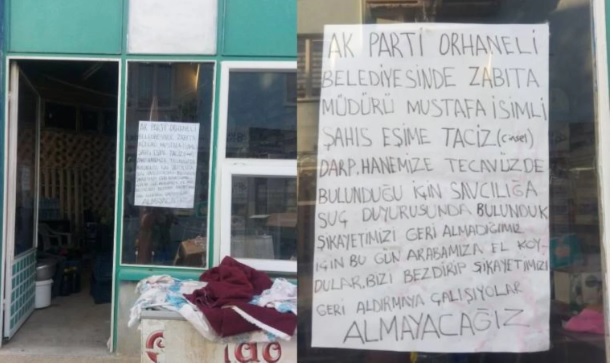 AK PARTİ ORHANELİ
BELEDİYESİNDE ZABITA
MÜDÜRÜ MUSTAFA İSİMLİ
ŞAHIS EŞİME TACİZ.(Cinsel)
DARP.HANEMİZE TECAVÜZDE
BULUNDUĞU İÇİN SAVCILIĞA
SUÇ DUYURUSUNDA BULUNDUK
ŞİKAYETİMİZİ GERİ ALMADIĞIMIZ
İÇİN BU GÜN ARABAMIZA EL KOY-
DULAR.BİZİ BEZDİRİP ŞİKAYETİMİZİ
GERİ ALDIRMAYA ÇALIŞIYOLAR
ALMAYACAĞIZ